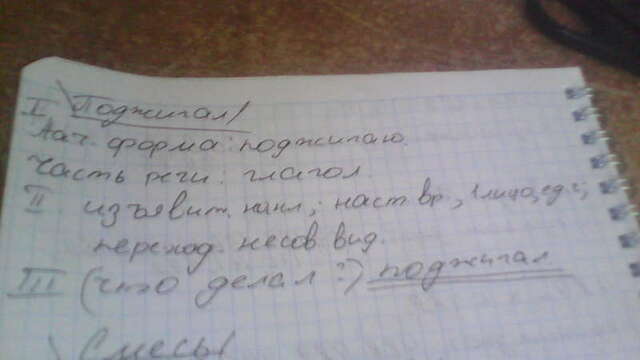 I Поджигал/
Нач. форма: поджигаю.
Часть речи: глагол
II изъявит. накл; наст. вр., 1 лицо, ед. ч;
переход. несов. вид.
III (что делал?) поджигал
Смесы